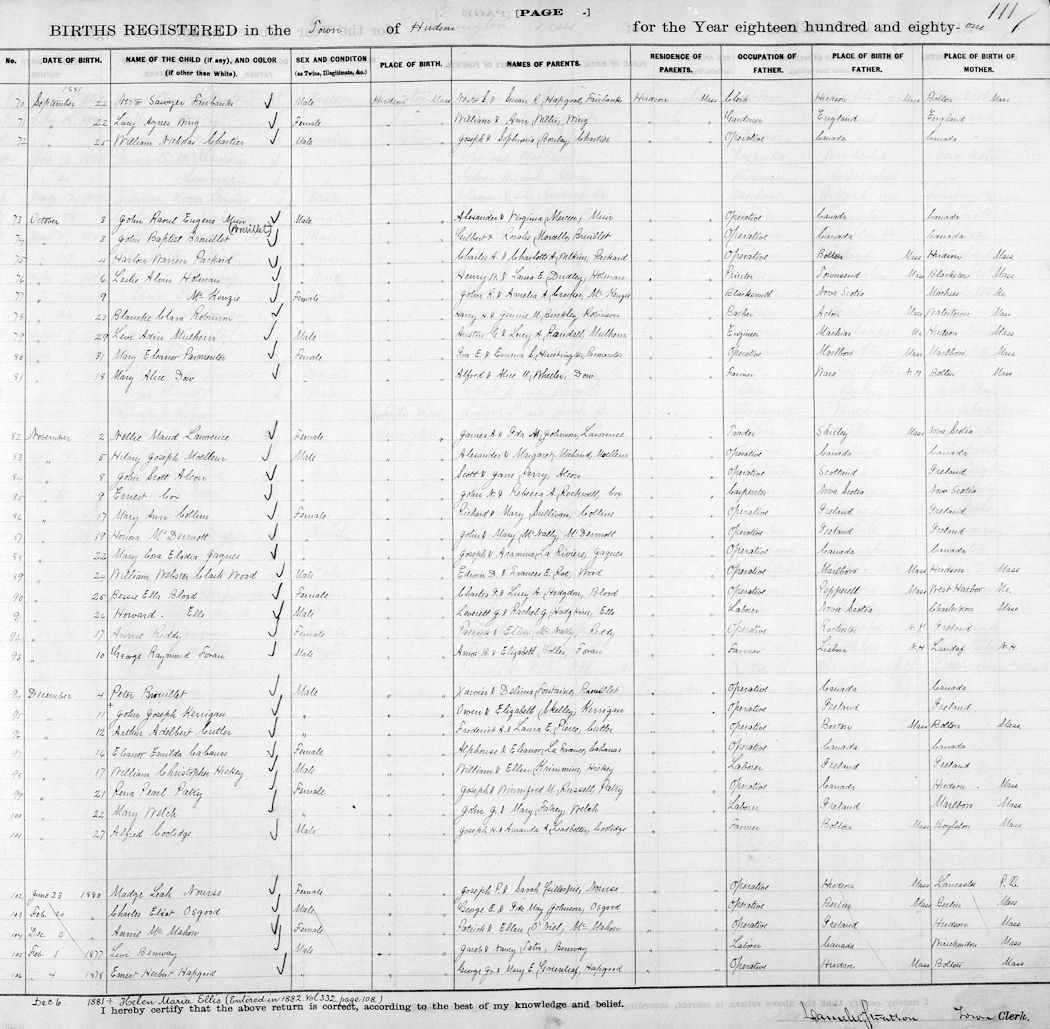 [PAGE -] 111
BIRTHS REGISTERED in the Town of Hudson for the Year eighteen hundred and eighty-one
No. DATE OF BIRTH. NAME OF THE CHILD (if any), AND COLOR (if other than White). SEX AND CONDITON (as Twins, Illegitimate, &c.) PLACE OF BIRTH. NAMES OF PARENTS. RESIDENCE OF PARENTS. OCCUPATION OF FATHER. PLACE OF BIRTH OF FATHER. PLACE OF BIRTH OF MOTHER.
1881
70 September 22 Sawyer Fairbanks Male Hudson Mass Susan R. Hapgood, Fairbanks Hudson Mass Clerk Hudson Mass Bolton Mass
71 " 22 Lucy Agnes Wing Female " " William & Ann, Willis, Wing " " Gardner England England
72 " 25 William Nicholas Chartier Male " " Joseph & Sophronia, Chartier " " Operative Canada Canada
73 October 3 John Raoul Eugene Muir Male " " Alexander & Virginia, Mercier, Muir " " Operative Canada Canada
(Brouillet)
74 " 3 John Baptist Brouillet " " " Gilbert & Rosalie, Brouillet " " Operative Canada Canada
75 " 4 Harlon Warren Packard " " " Charles A & Charlotte A, Wilkins, Packard " " Operative Bolton Mass Hudson Mass
76 " 6 Leslie Alvin Holman " " " Henry W. & Laura E, Dudley, Holman " " Printer Townsend Mass Blackston Mass
77 " 9 Mc Kenzie Female " " John R. & Amelia A, Crocker, Mc Kenzie " " Blacksmith Nova Scotia Machias Me.
78 " 23 Blanche Clara Robinson " " " Harry H & Jennie M, Buckley, Robinson " " Acton Mass Watertown Mass
79 " 29 Levi Adin Mulhern Male " " Austin G & Lucy A, Randell, Mulhern " " Engineer Machias Me Hudson Mass
80 " 31 Mary Eleanor Parmenter Female " " Ira E & Emma L, Parmenter " " Operative Marlboro Mass Marlboro Mass
81 " 18 Mary Alice Dow " " " Alfred & Alice M, Wheeler, Dow " " Farmer Ware N.H Bolton Mass
82 November 2 Nellie Maud Lawrence Female " " James A. & Ida M, Johnson, Lawrence " " Teader Shirley Mass Nova Scotia
83 " 5 Hilary Joseph Moelleur Male " " Alexander & Margaret, Michaud, Moelleur " " Operative Canada Canada
84 " 8 John Scott Alcon " " " Scott & Jane, Perry, Alcon " " Operative Scotland Ireland
85 " 9 Ernest Cox " " " John N. & Rebecca A, Rockwell, Cox " " Carpenter Nova Scotia Nova Scotia
86 " 17 Mary Ann Collins Female " " Richard & Mary, Sullivan, Collins " " Operative Ireland Ireland
87 " 19 Honora Mc Dermott " " " John & Mary, Mc Nally, Mc Dermott " " Operative Ireland Ireland
88 " 22 Mary Cora Elodia Gagnes " " " Joseph & Araminia, La Riviere, Gagnes " " Operative Canada Canada
89 " 24 William Webster Clark Wood Male " " Edwin D. & Frances E, Wood " " Operative Marlboro Mass Hudson Mass
90 " 25 Bessie Ells Blood Female " " Charles F. & Lucy A, Hodgdon, Blood " " Operative Pepperell Mass West Harbor Me.
91 " 26 Howard. Ells Male " " Leverett J. & Rachel J, Hodgkins, Ells " " Laborer Nova Scotia Charlestown Mass
92 " 17 Annie Reddy Female " " Patrick & Ellen, Mc Nally, Reddy " " Operative Rochester N.Y Ireland
93 " 10 George Raymond Foran Male " " Amos B. & Elizabeth, Foran " " Farmer Lisbon N.H Landaf N.H
94 December 4 Peter Brouillet Male " " Delima, Fontaine, Brouillet " " Operative Canada Canada
95 " 11 John Joseph Kerrigan " " " Owen & Elizabeth, Skelley, Kerrigan " " Operative Ireland Ireland
96 " 12 Arthur Adelbert Cutler " " " Frederick A & Laura E, Pierce, Cutler " " Operative Boston Mass Bolton Mass
97 " 16 Eleanor Emilda Cabanas Female " " Alphonse & Eleanor, La France, Cabanas " " Operative Canada Canada
98 " 17 William Christopher Hickey Male " " William & Ellen, Hickey " " Laborer Ireland Ireland
99 " 21 Lena Pearl Patry Female " " Joseph & Winnifred M, Russell, Patry " " Operative Canada Hudson Mass
100 " 22 Mary Welch " " " John J. & Mary, Fahey, Welch " " Laborer Ireland Marlboro Mass
101 " 27 Alfred Coolidge Male " " Joseph H. & Amanda A, Leadbetter, Coolidge " " Farmer Bolton Mass Boylston Mass
102 June 23 1880 Madge Leah Nourse Female " " Joseph P. & Sarah, Gillespie, Nourse " " Operative Hudson Mass Lancaster
103 Feb. 20 " Charles Eliot Osgood Male " " George E. & Ida May, Johnson, Osgood " " Operative Berlin Mass Berlin Mass
104 Dec 2 " Annie Mc Mahon Female " " Patrick & Ellen, O'Niel, Mc Mahon " " Operative Ireland Hudson Mass
105 Feb. 1 1877 Levi Benway Male " " Jacob & Nancy, Tatro, Benway " " Laborer Canada Winchendon Mass
106 " 4 1878 Ernest Herbert Hapgood " " " George G. & Mary E, Greenleaf, Hapgood " " Operative Hudson Mass Bolton Mass
Dec 6. 1881 + Helen Maria Ellis (Entered in 1882. Vol 332, page 108.)
I hereby certify that the above return is correct, according to the best of my knowledge and belief.
Stratton Town Clerk.